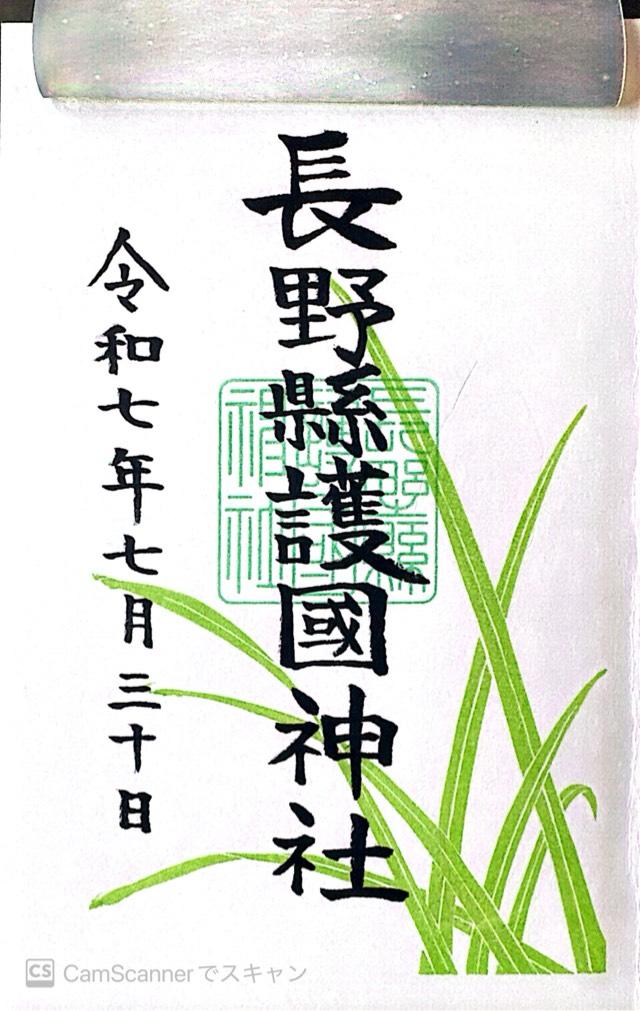 長野縣護國神社
令和七年七月三十日
長野縣護國神社
CS CamScannerでスキャン